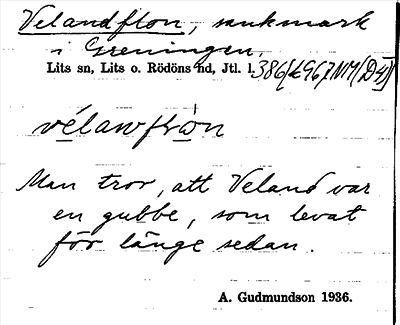 Velandflon, sankmark
i Greningen,
Lits sn, Lits o. Rödöns hd, Jtl. l.
vélawflòn
Man tror, att Veland var
en gubbe, som levat
för länge sedan.
A. Gudmundson 1936.